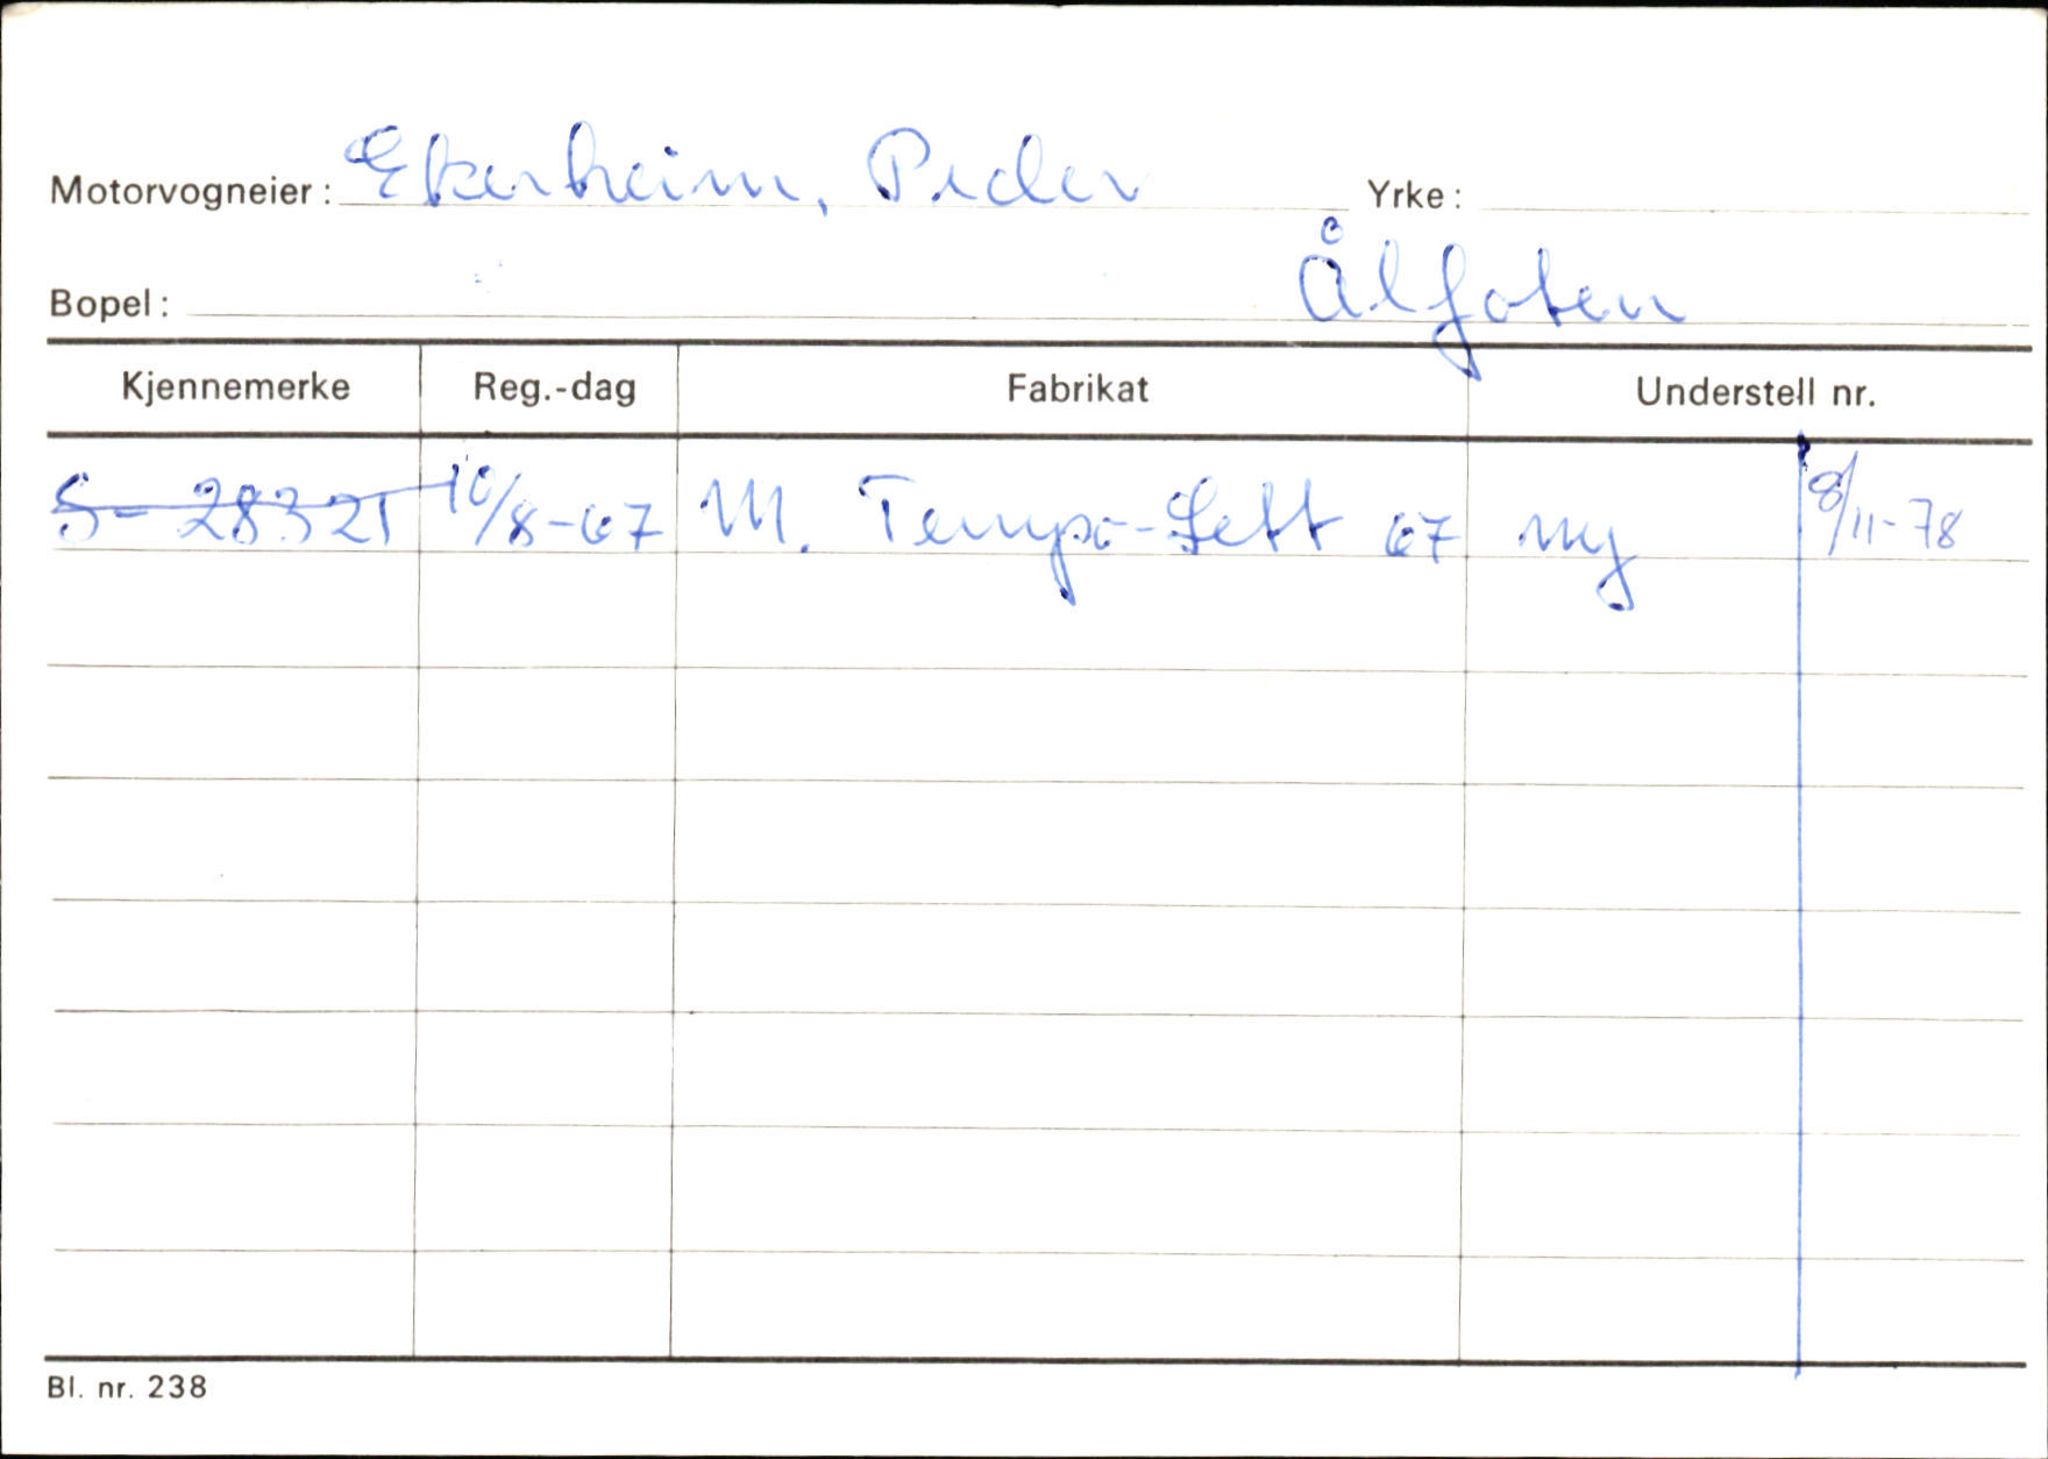 Motorvogneier: Ekerheim, Peder Yrke:
Bopel: Ålfoten
Kjennemerke Reg.-dag Fabrikat Understell nr.
S-28321 10/8-67 M. Tempo-Lett 67 ny 8/11-78
Bl. nr. 238